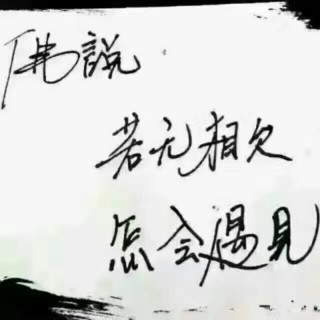 佛說
若无相欠
怎会遇見